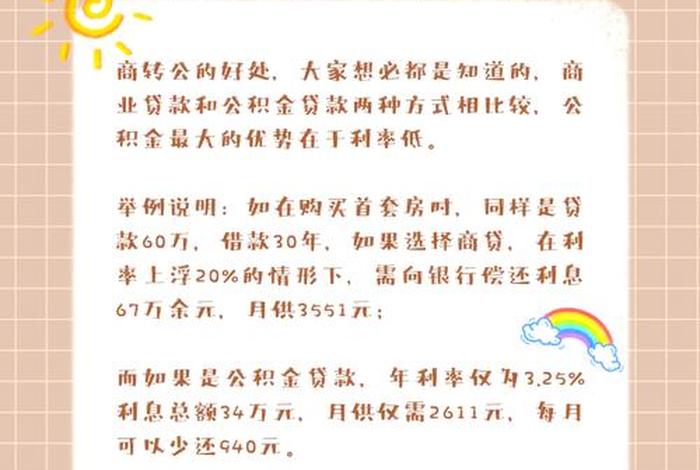 商转公的好处，大家想必都是知道的，商
业贷款和公积金贷款两种方式相比较，公
积金最大的优势在于利率低。
举例说明：如在购买首套房时，同样是贷
款60万，借款30年，如果选择商贷，在利
率上浮20%的情形下，需向银行偿还利息
67万余元，月供3551元；
而如果是公积金贷款，年利率仅为3.25%
利息总额34万元，月供仅需2611元，每月
可以少还940元。